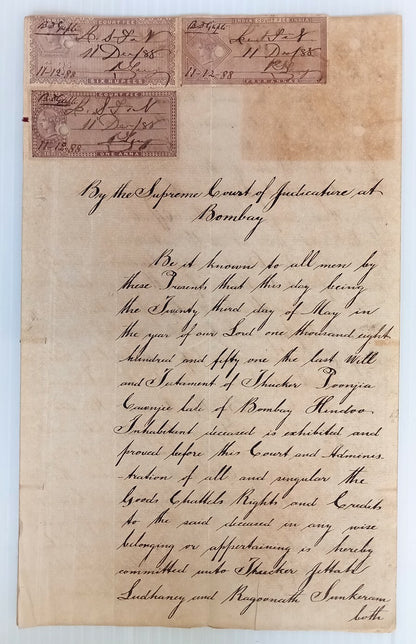 COURT FEE
SIX RUPEES
11 Dec/88
11-12-88
INDIA COURT FEE INDIA
11 Dec/88
11-12-88
COURT FEE
ONE ANNA
11 Dec/88
11-12-88
By the Supreme Court of Judicature at
Bombay
Be it known to all men by
these Presents that this day being
the Twenty third day of May in
the year of our Lord one thousand eight
hundred and fifty one the last Will
and Testament of Thucker Poonjia
Cawnjee late of Bombay Hindoo
Inhabitant deceased is exhibited and
proved before this Court and Adminis
tration of all and singular the
Goods Chattels Rights and Credits
to the said deceased in any wise
belonging or appertaining is hereby
committed unto Thucker Jettah
Ludhaney and Ragoonath Sunkeram
both